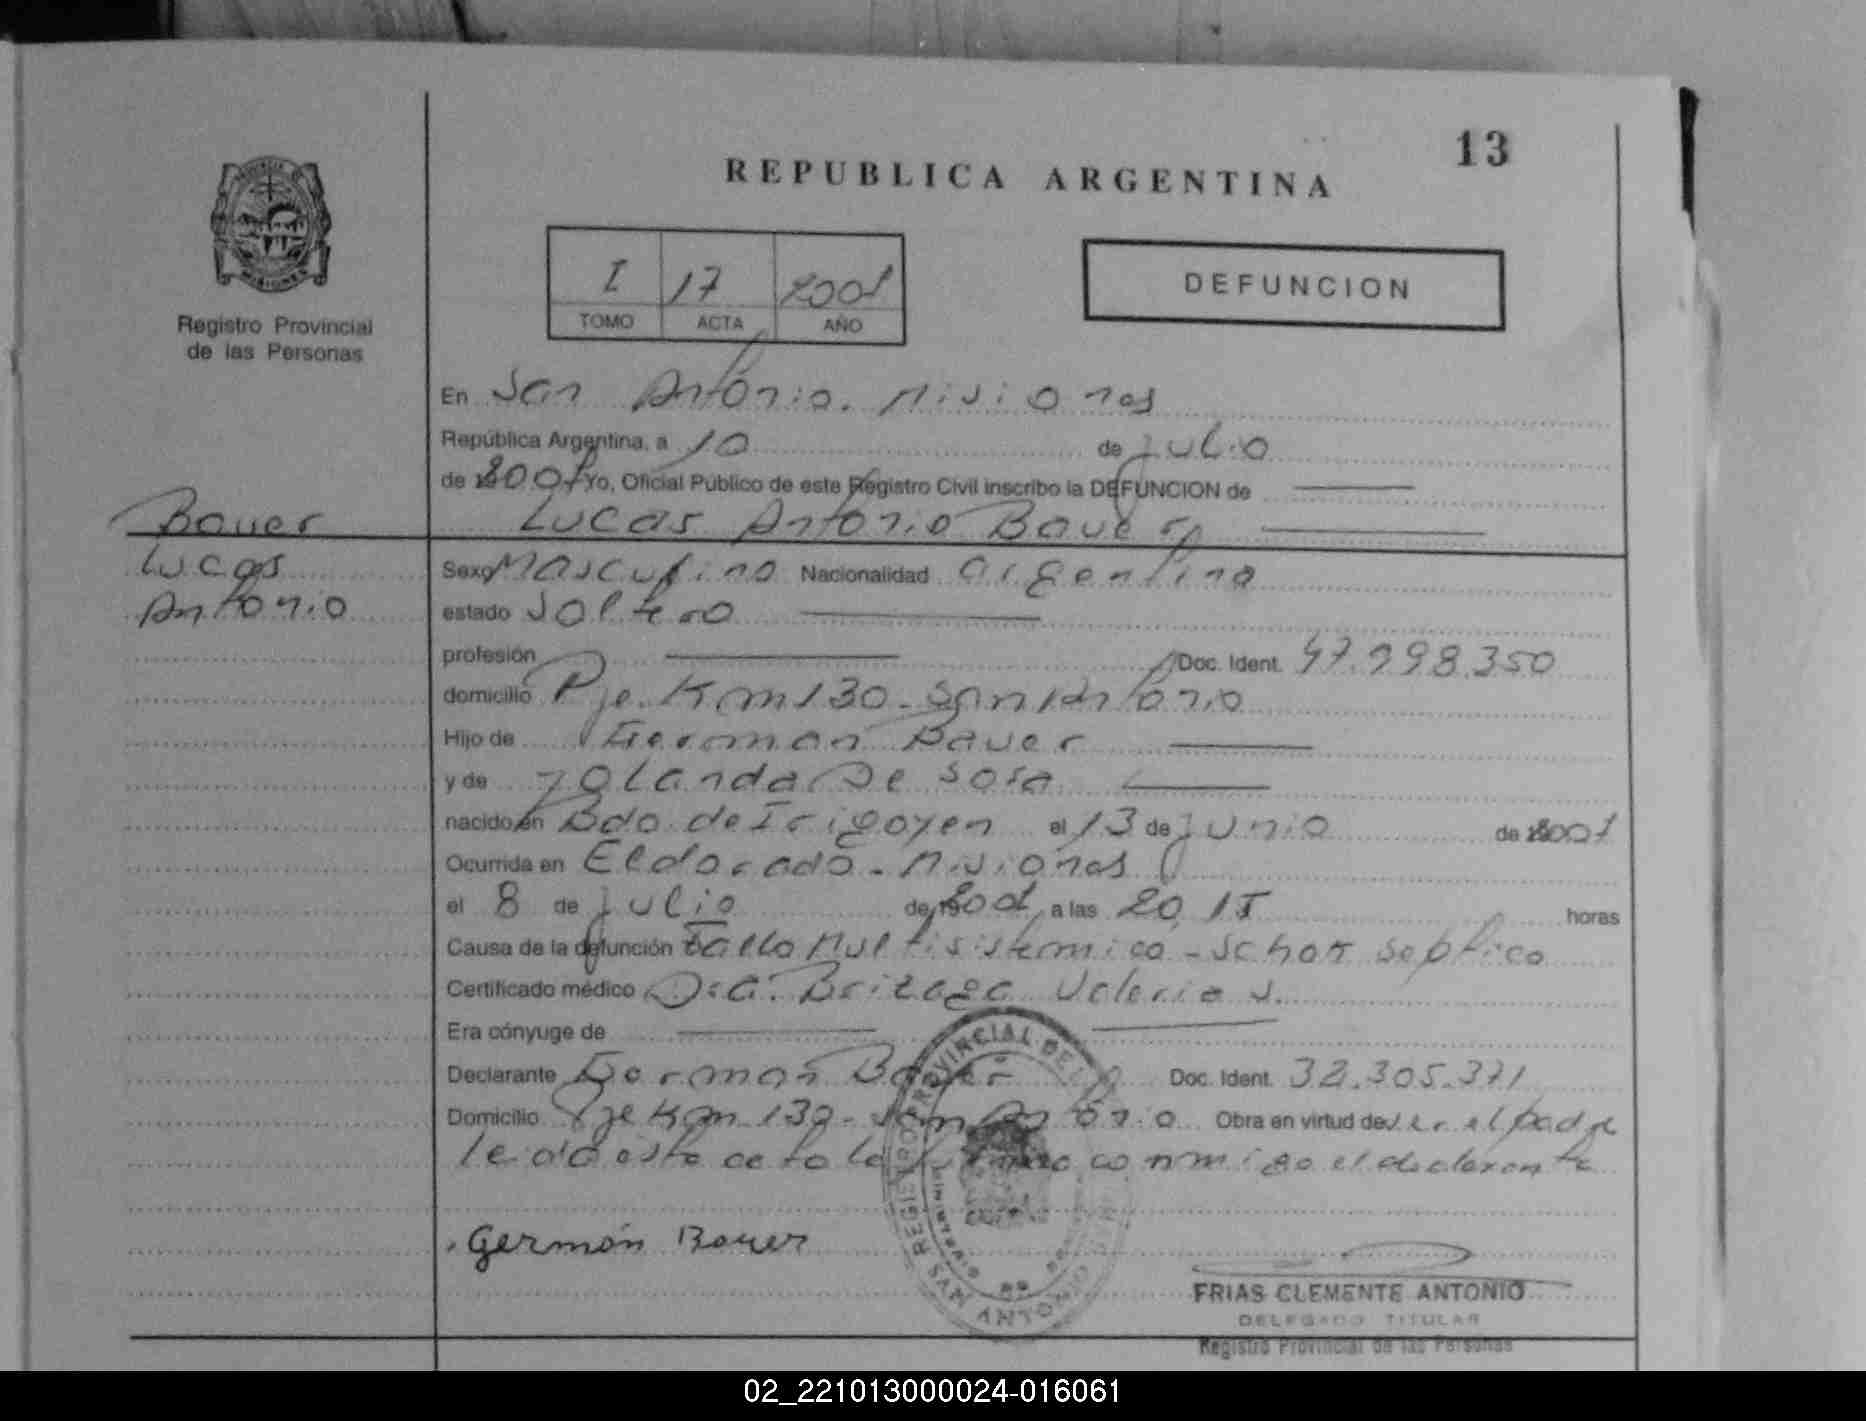 13
REPUBLICA ARGENTINA
I 17 2001
TOMO ACTA AÑO
DEFUNCION
Registro Provincial
de las Personas
En San Antonio. Misiones
República Argentina, a 10 de Julio
de 2001 Yo, Oficial Público de este Registro Civil inscribo la DEFUNCION de
Bauer
Lucas
Antonio
Lucas Antonio Bauer
Sexo Masculino Nacionalidad argentina
estado Soltero
profesión Doc. Ident. 47.998.350
domicilio Pje. Km 130 - San Antonio
Hijo de German Bauer
y de Yolanda De Sosa
nacido en Bdo. de Irigoyen el 13 de Junio de 2001
Ocurrida en Eldorado - Misiones
el 8 de Julio de 2001 a las 20,15 horas
Causa de la defunción Fallo Multisistemico - Schok septico
Certificado médico Dra. Britaga Valeria J.
Era cónyuge de
Declarante German Bauer Doc. Ident. 32.305.371
Domicilio Pje Km 130 - San Antonio Obra en virtud de ser el padre
leida esta acta la firma conmigo el declarante
Germán Bauer
REGISTRO PROVINCIAL DE
SAN ANTONIO
FRIAS CLEMENTE ANTONIO
DELEGADO TITULAR
Registro Provincial de las Personas
02_221013000024-016061